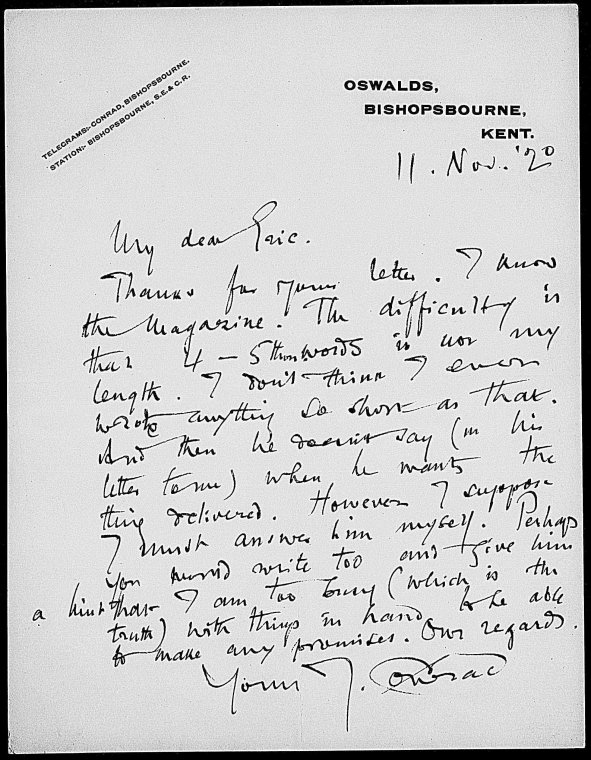 TELEGRAMS:- CONRAD, BISHOPSBOURNE.
STATION:- BISHOPSBOURNE, S.E. & C.R.
OSWALDS,
BISHOPSBOURNE,
KENT.
11. Nov. '20
My dear Eric.
Thanks for your letter. I know
the Magazine. The difficulty is
that 4 – 5 thou: words is not my
length. I don't think I ever
wrote anything so short as that.
And then he doesn't say (in his
letter to me) when he wants the
thing delivered. However I suppose
I must answer him myself. Perhaps
you would write too and give him
a hint that I am too busy (which is the
truth) with things in hand to be able
to make any promises. Our regards.
Yours J. Conrad